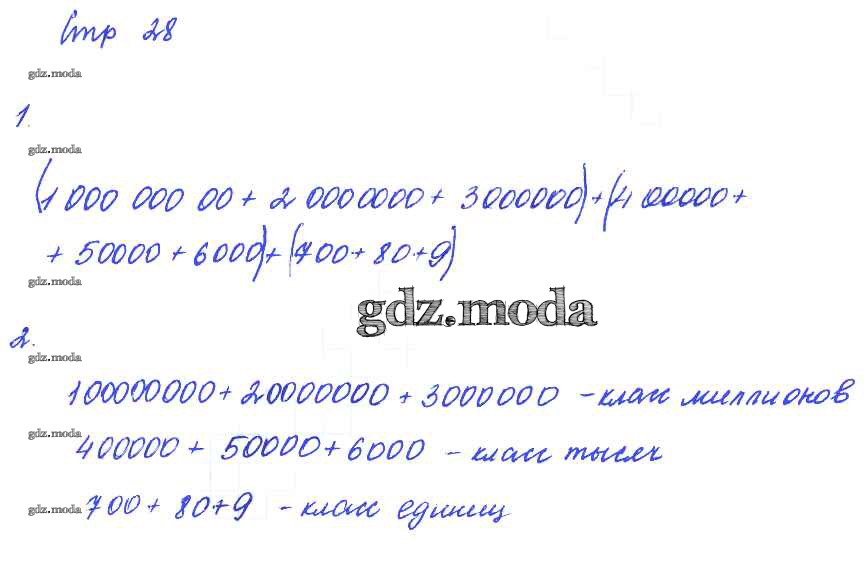 Стр 28
gdz.moda
1.
gdz.moda
(1 000 000 00 + 2 0000000 + 3000000) + (400000 +
+ 50000 + 6000) + (700 + 80 + 9)
gdz.moda
gdz.moda
2.
gdz.moda
100000000 + 20000000 + 3000000 - класс миллионов
gdz.moda
400000 + 50000 + 6000 - класс тысяч
gdz.moda
700 + 80 + 9 - класс единиц